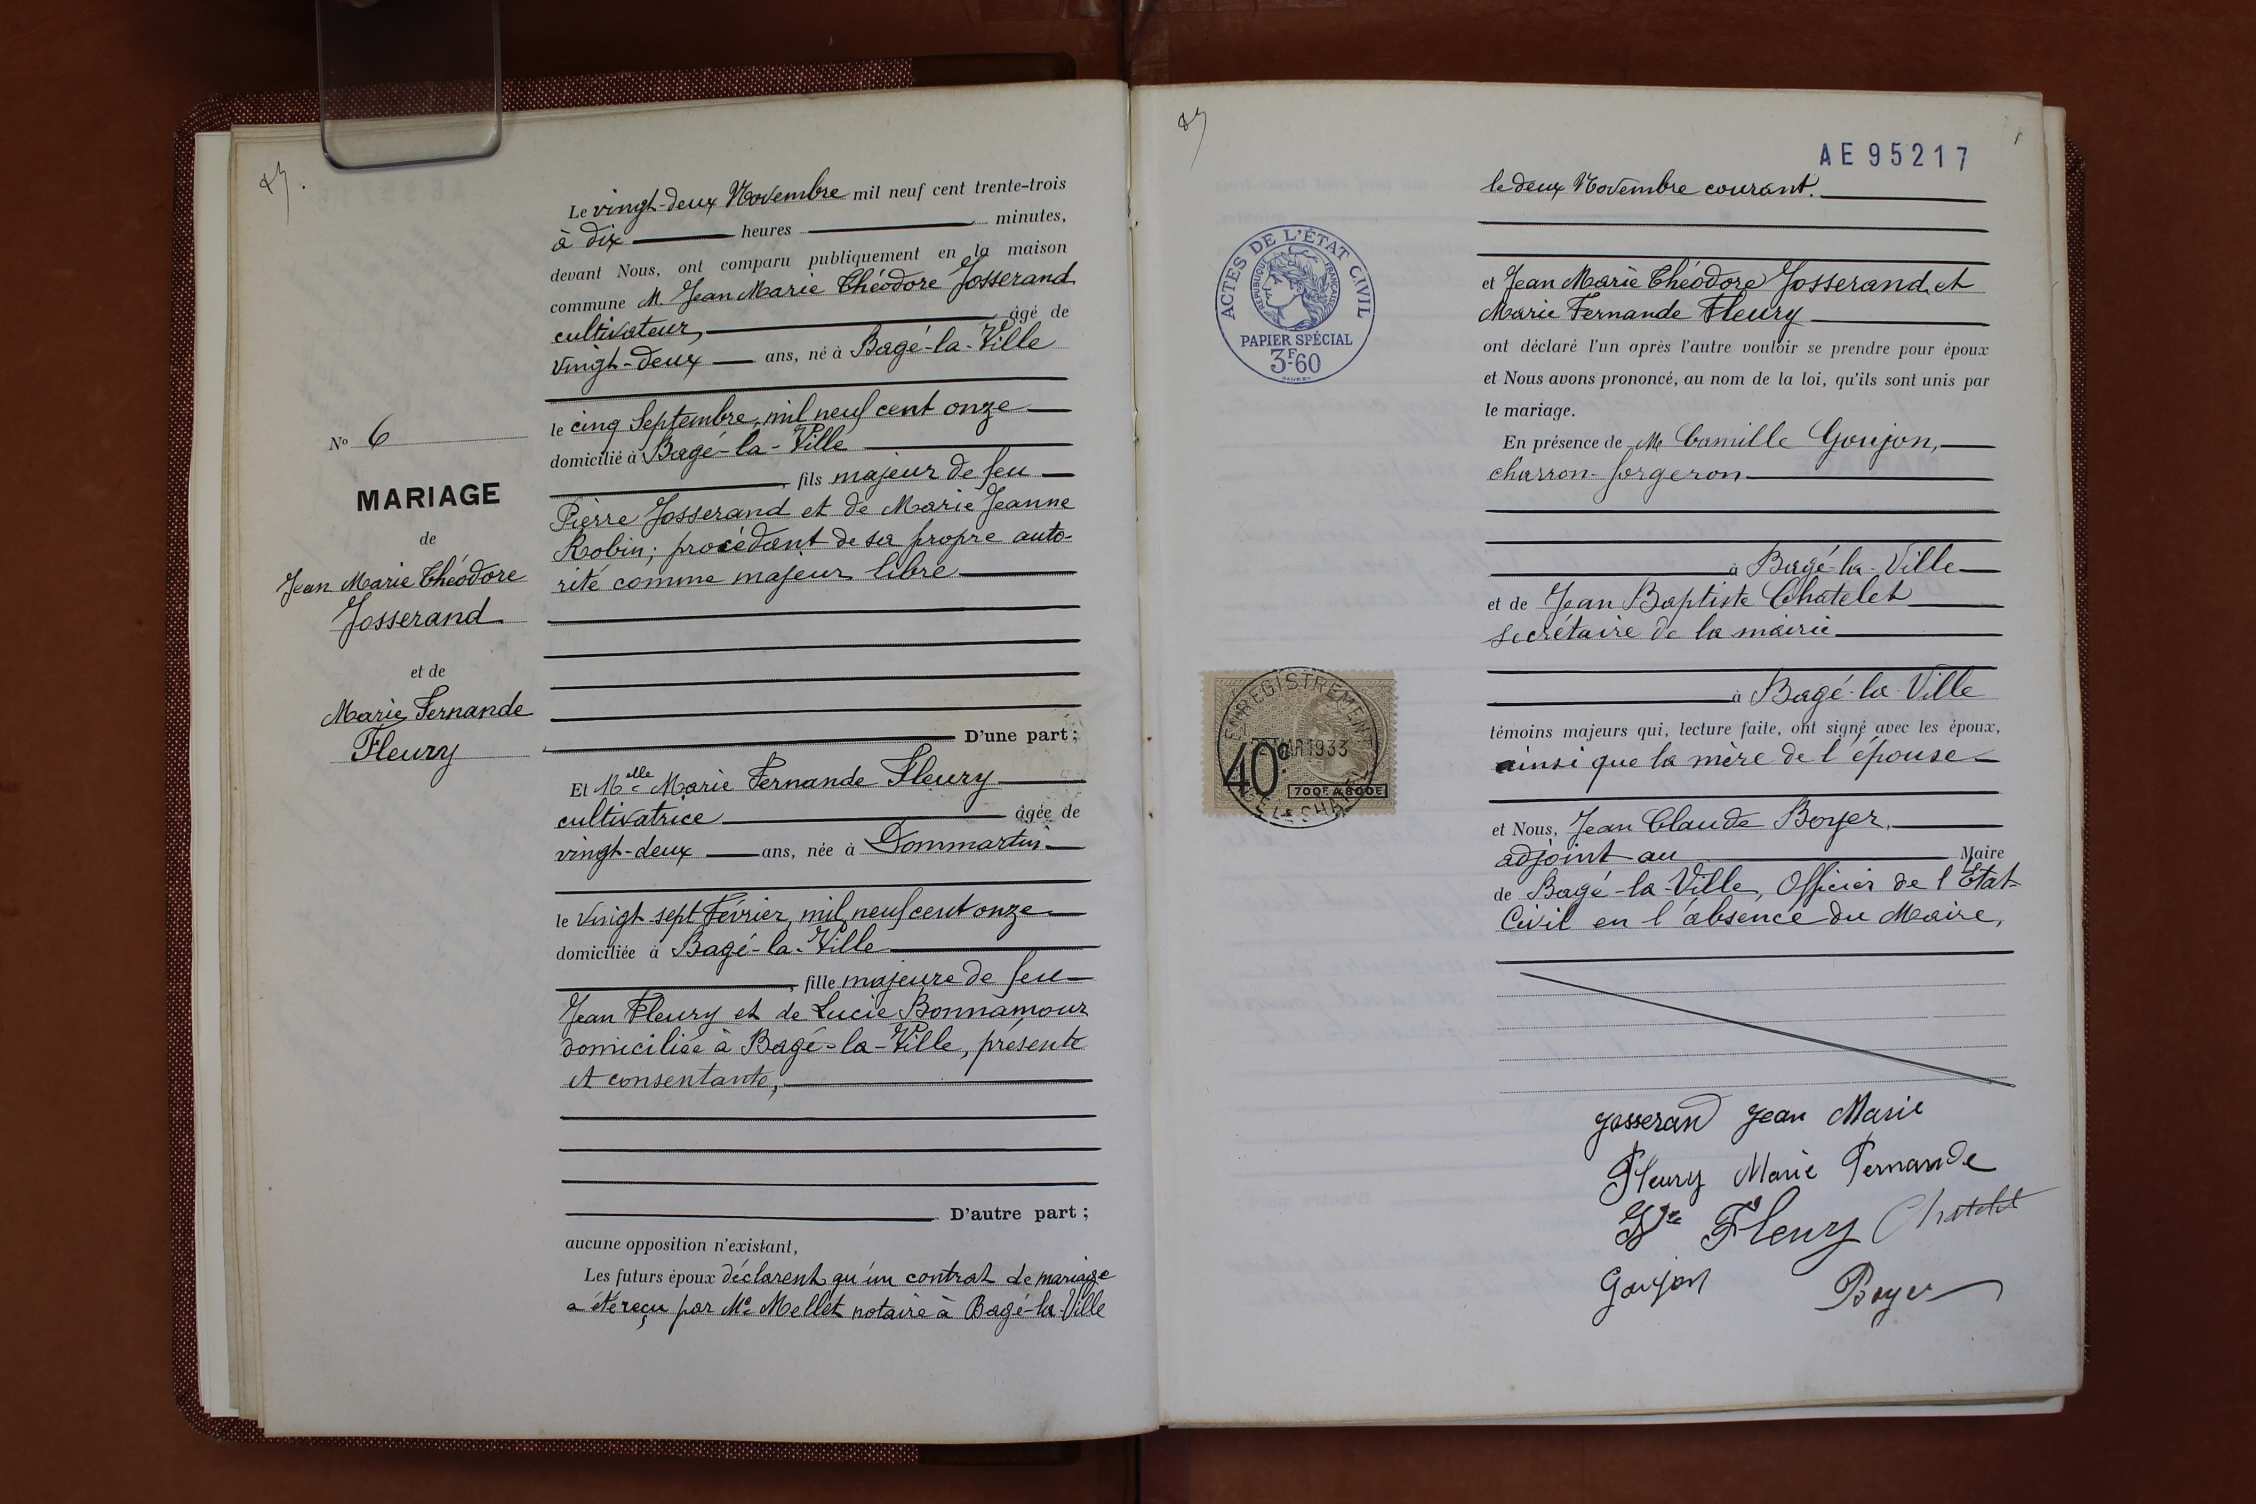 Le vingt-deux Novembre mil neuf cent trente-trois
à dix heures minutes,
devant Nous, ont comparu publiquement en la maison
commune M. Jean Marie Théodore Josserand
cultivateur, âgé de
vingt-deux ans, né à Bagé-la-Ville
le cinq Septembre, mil neuf cent onze
domicilié à Bagé-la-Ville
, fils majeur de feu
Pierre Josserand et de Marie Jeanne
Robin; procédant de sa propre auto-
rité comme majeur libre
D'une part;
Et Melle Marie Fernande Fleury
cultivatrice âgée de
vingt-deux ans, née à Dommartin
le vingt sept Février, mil neuf cent onze
domiciliée à Bagé-la-Ville
, fille majeure de feu
Jean Fleury et de Lucie Bonnamour
domiciliée à Bagé-la-Ville, présente
et consentante,
D'autre part;
aucune opposition n'existant,
Les futurs époux déclarent qu'un contrat de mariage
a été reçu par Me Mellet notaire à Bagé-la-Ville
No 6
MARIAGE
de
Jean Marie Théodore
Josserand
et de
Marie Fernande
Fleury
AE 95217
le deux Novembre courant.
et Jean Marie Théodore Josserand et
Marie Fernande Fleury
ont déclaré l'un après l'autre vouloir se prendre pour époux
et Nous avons prononcé, au nom de la loi, qu'ils sont unis par
le mariage.
En présence de M Camille Goujon,
charron-forgeron
à Bagé-la-Ville
et de Jean Baptiste Chatelet
secrétaire de la mairie
à Bagé-la-Ville
témoins majeurs qui, lecture faite, ont signé avec les époux,
ainsi que la mère de l'épouse
et Nous, Jean Claude Boyer,
adjoint au Maire
de Bagé-la-Ville, Officier de l'Etat
Civil en l'absence du Maire,
Josserand Jean Marie
Fleury Marie Fernande
Vve Fleury Chatelet
Goujon Boyer
ACTES DE L'ÉTAT CIVIL
RÉPUBLIQUE FRANÇAISE
PAPIER SPÉCIAL
3F.60
ENREGISTREMENT
1933
40c
700F A 800F